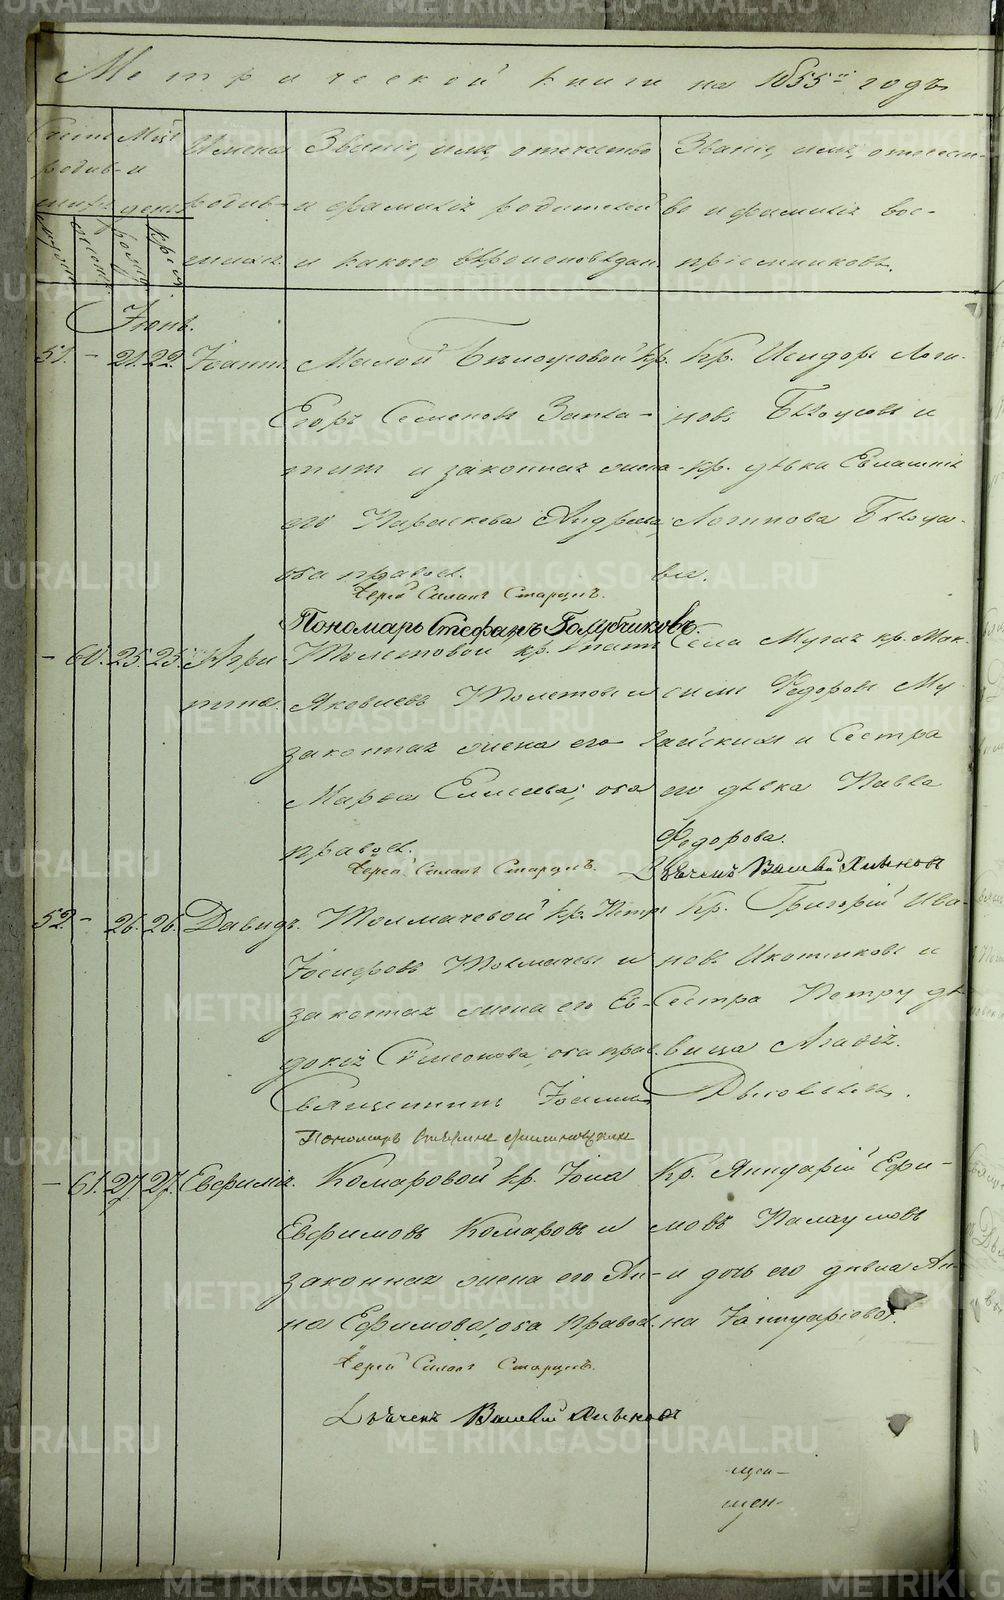 Метрической книги на 1855й годъ
Счетъ родив- Мцъ и
шихъ день
Имена родив-
шихъ.
Званіе, имя, отчество
и фамилія родителей
и какого вѣроисповѣдан.
Званіе, имя, отчест-
во и фамилія вос-
пріемниковъ.
Іюнь.
51. - 21. 22. Іоаннъ.
Малой Бѣлоусовой кр.
Егоръ Семеновъ Запла-
тинъ и законная жена
его Параскева Андреева,
оба правосл.
Кр. Исидоръ Логи-
новъ Бѣлоусовъ и
кр. дѣвка Евлампія
Логинова Бѣлоусо-
ва.
Іерей Силанъ Старцевъ.
Пономарь Стефанъ Голубчиковъ.
- 60. 25. 25. Агрип-
пина.
кр. Ипатъ
Яковлевъ и
законная жена его
Марѳа Елисѣева, оба
правосл.
Села кр. Мак-
симъ Федоровъ Му-
гайскихъ и Сестра
его дѣвка Павла
Федорова.
Іерей Силанъ Старцевъ.
Дьячекъ Василій
52. - 26. 26. Давидъ.
Толмачевой кр. Петръ
Іосифовъ Толмачевъ и
законная жена его Ев-
докія Симеонова, оба прав.
Кр. Григорій Ива-
новъ Икотниковъ и
Сестра Петру дѣ-
вица Агафія.
Священникъ Іоаннъ
Пономарь
- 61. 27. 27. Евфимія.
Комаровой кр. Іона
Евфимовъ Комаровъ и
законная жена его Ан-
на Ефимова, оба правосл.
Кр. Яннуарій Ефи-
мовъ Палаумовъ
и дочь его дѣвка Ан-
на Іаннуаріева.
Іерей Силанъ Старцевъ.
Дьячекъ Василій
щен-
METRIKI.GASO-URAL.RU